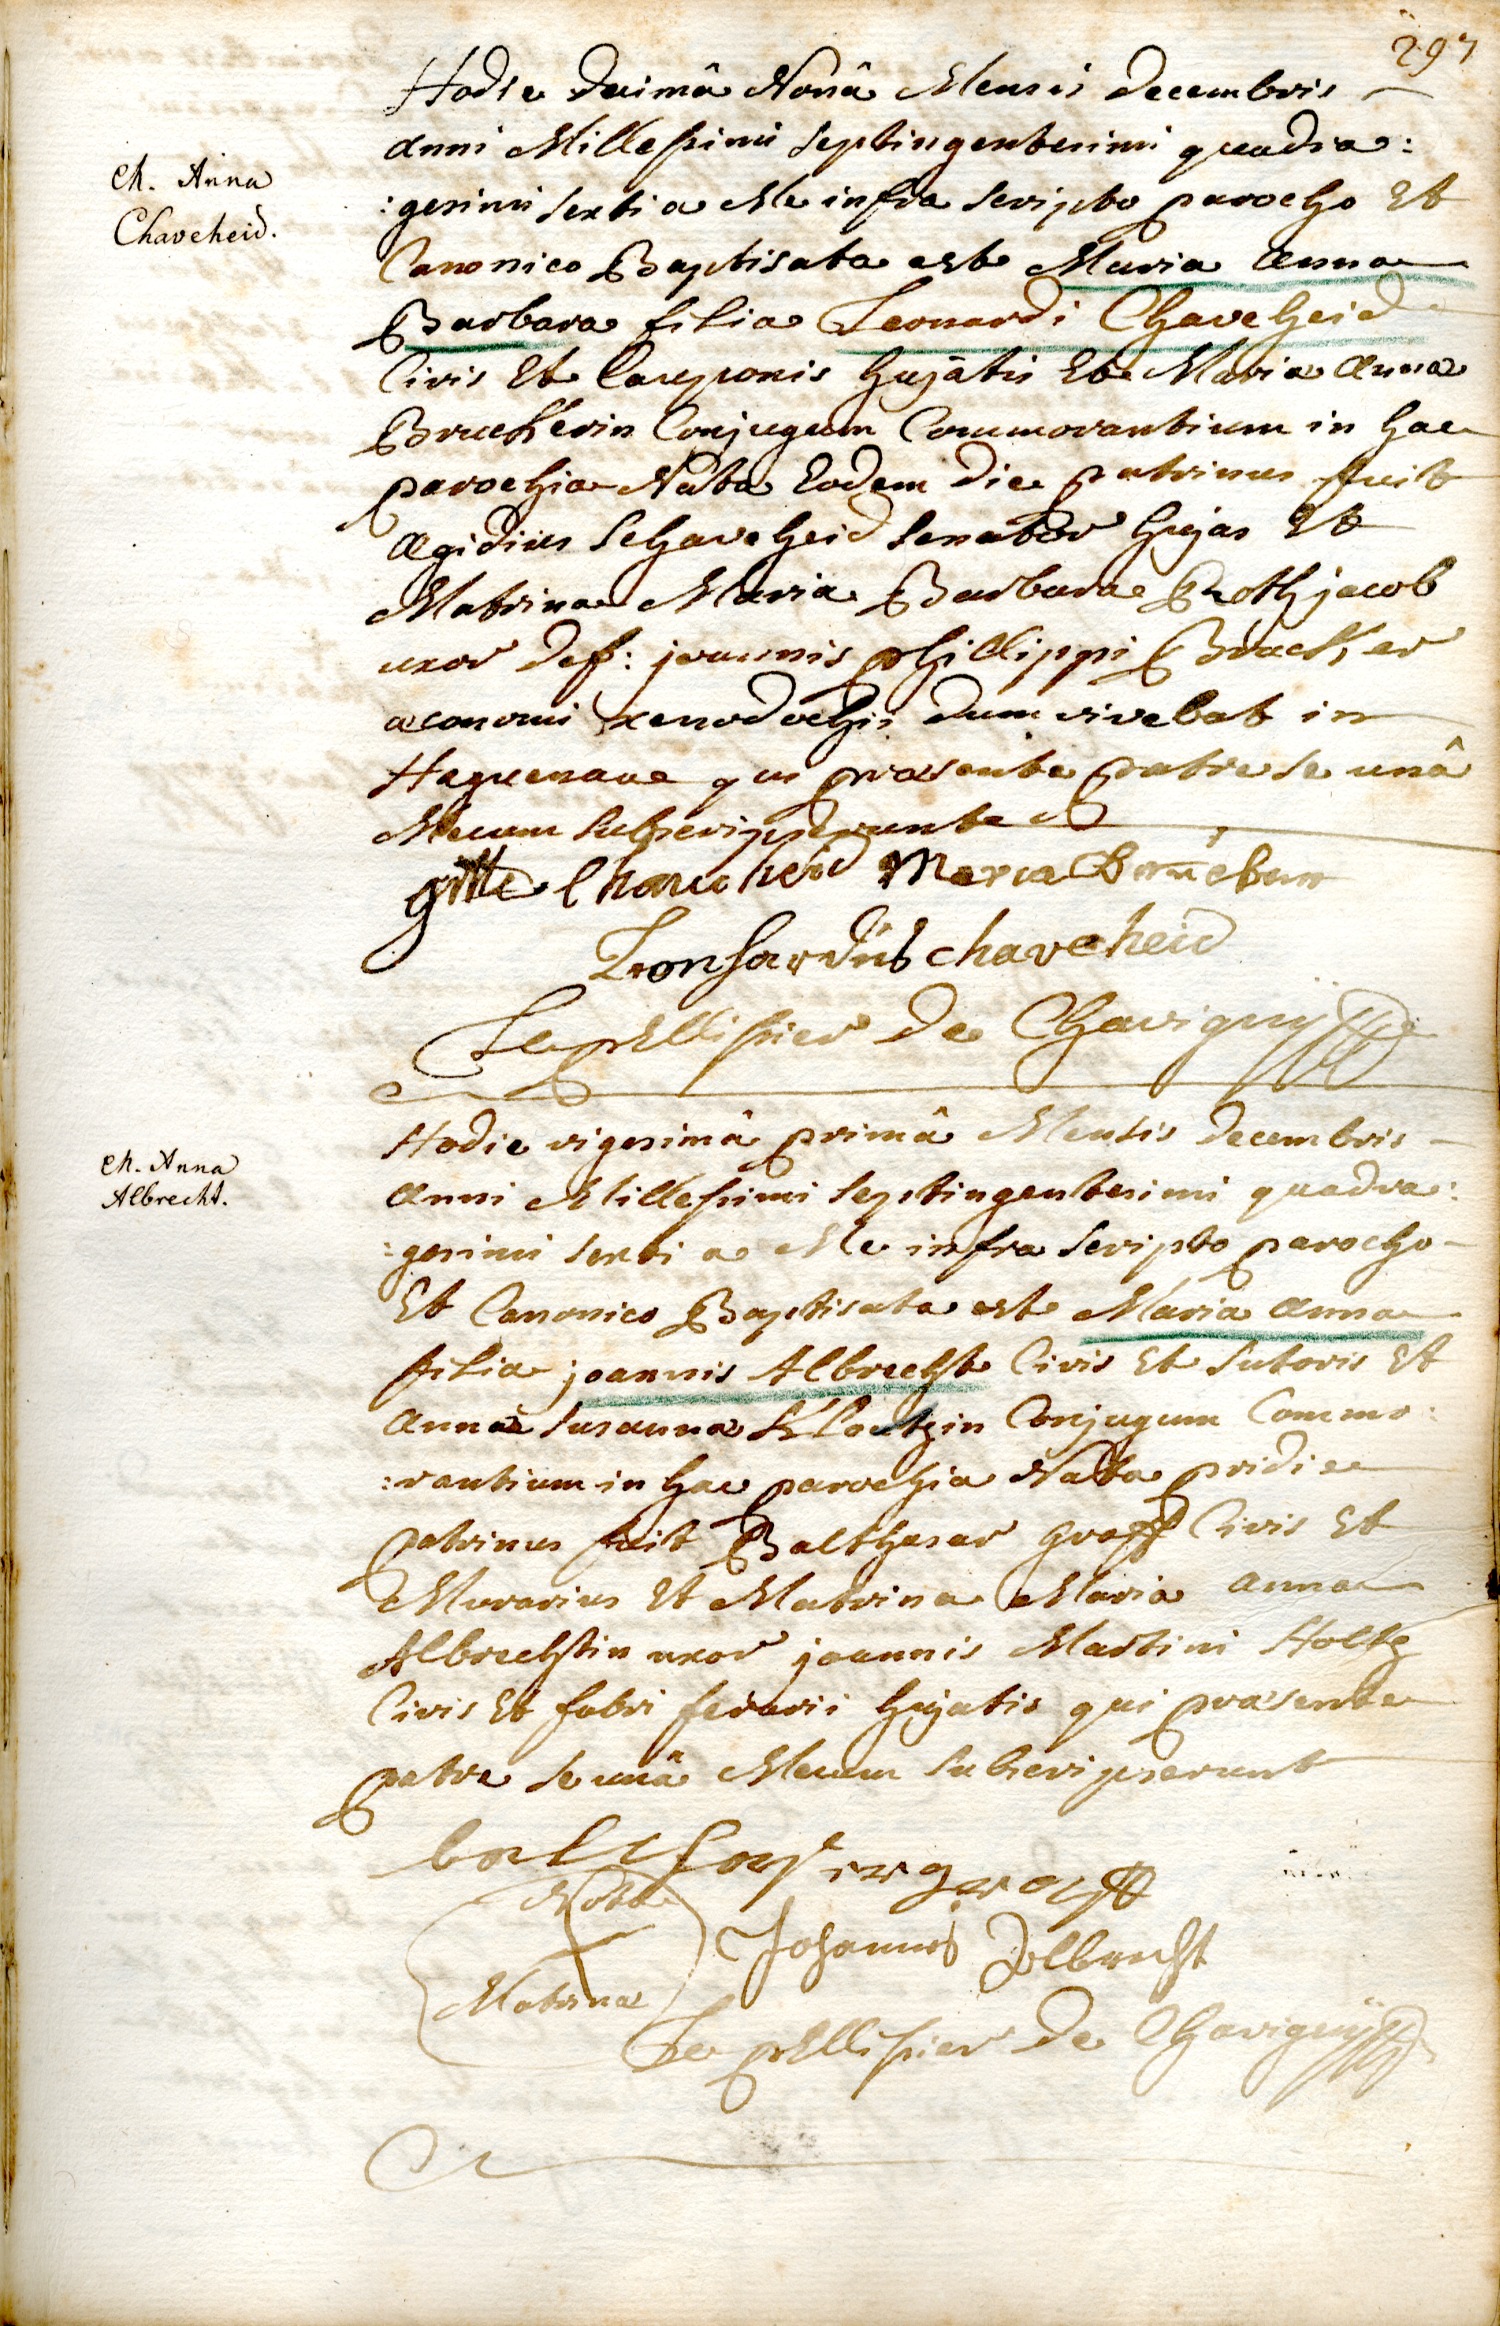 297
Hodie decimâ Nonâ Mensis decembris
anni Millesimi septingentesimi quadra:
M. Anna
Chaveheid.
:gesimi sexti a Me infra scripto parocho Et
Canonico Baptisata est Maria Anna
Barbara filia Leonardi Chaveheid
Civis Et Cauponis hujatis Et Maria Anna
Bruckerin Conjugum Commorantium in hac
parochia Nata Eodem die patrinus fuit
Ægidius schaveheid senator hujas Et
Matrina Maria Barbara Rothjacob
uxor def: joannis phillippi Brucker
œconomi xenodochii dum vivebat in
Haguenau qui præsente patre se unâ
Mecum subscripserunt
gille Chaveheid Maria
Leonhardus chaveheid
Le pellissier De Chavignÿ
Hodie vigesimâ primâ Mensis decembris
M. Anna
Albrecht.
Anni Millesimi septingentesimi quadra:
:gesimi sexti a Me infra scripto parocho
Et Canonico Baptisata est Maria Anna
filia joannis Albrecht Civis Et sutoris Et
Annæ susanna Kloetzin Conjugum Commo:
:rantium in hac parochia Nata pridie
patrinus fuit Balthasar graff Civis Et
Murarius Et Matrina Maria Anna
Albrechtin uxor joannis Martini Holtz
Civis Et fabri ferarii hujatis qui præsente
patre se unâ Mecum subscripserunt
balthasser graff
Nota
Johannes Albrecht
Matrinæ
Le pellissier De Chavignÿ